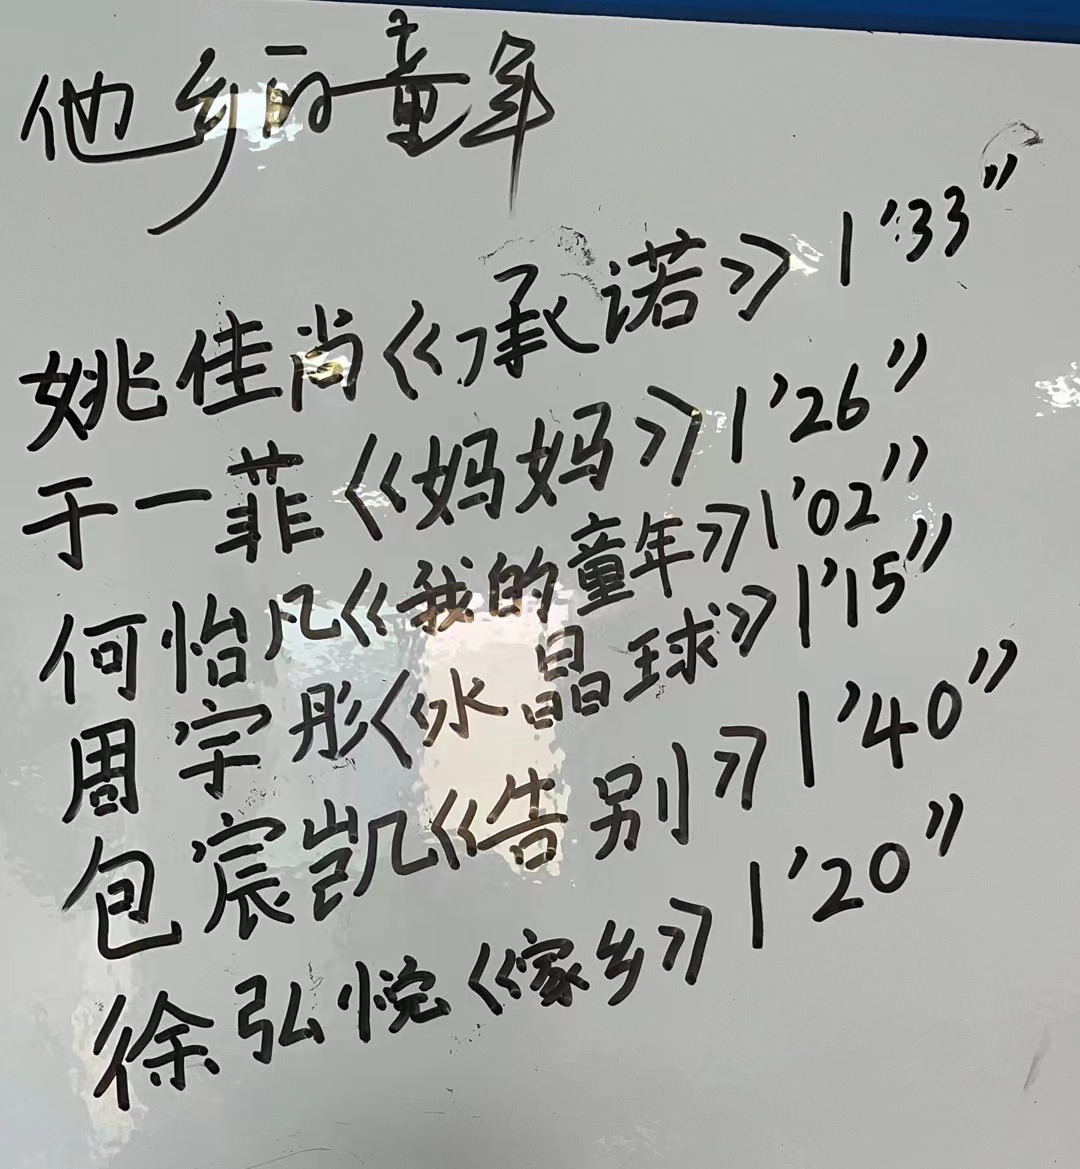 他乡的童年
姚佳尚《承诺》1'33"
于一菲《妈妈》1'26"
何怡凡《我的童年》1'02"
周宇彤《水晶球》1'15"
包宸凯《告别》1'40"
徐弘悦《家乡》1'20"